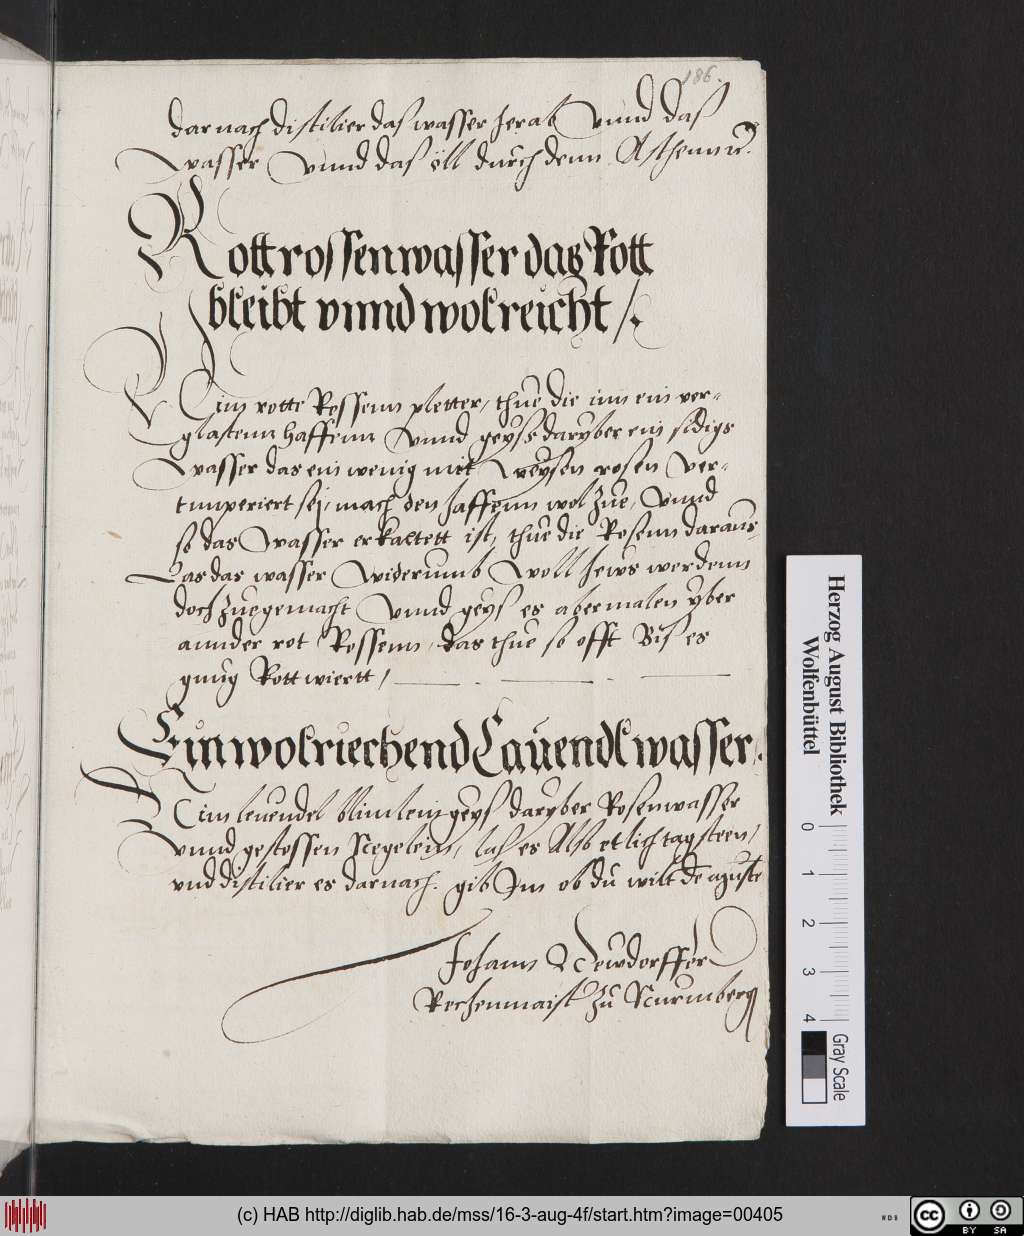 186.
darnach distilier das wasser herab Vnnd das
Wasser Vnnd das öll durch denn
Rott rossenwasser das Rott
bleibt vnnd wolreicht /.
Nim rotte Rossenn pletter, thue die inn ein ver-
glastenn Haffenn Vnnd geuss daryber ein sidigs
Wasser das ein wenig mit Weysen rosen Ver-
timperiert sej, mach den haffenn wol zue, Vnnd
so das Wasser erkaltett ist, thue die Rosenn daraus,
Las das wasser Widerumb Woll hews werdenn
doch zuegemacht Vnnd geus es abermalen yber
annder rot Rossenn, das thue so offt Bis es
gnug Rott wiertt /
Ein wolriechend Lauendl wasser.
Nim leuendel blimlein geus daryber Rosenwasser
Vnnd gestossen Negelein, las es Also etlich tag steen,
vnd distilier es darnach. gib Im ob du wilt de
Johann Newdorffer
Rechenmaist zu Nurmberg
Herzog August Bibliothek
Wolfenbüttel
0 1 2 3 4
Gray Scale
(c) HAB http://diglib.hab.de/mss/16-3-aug-4f/start.htm?image=00405
WDB
cc BY SA